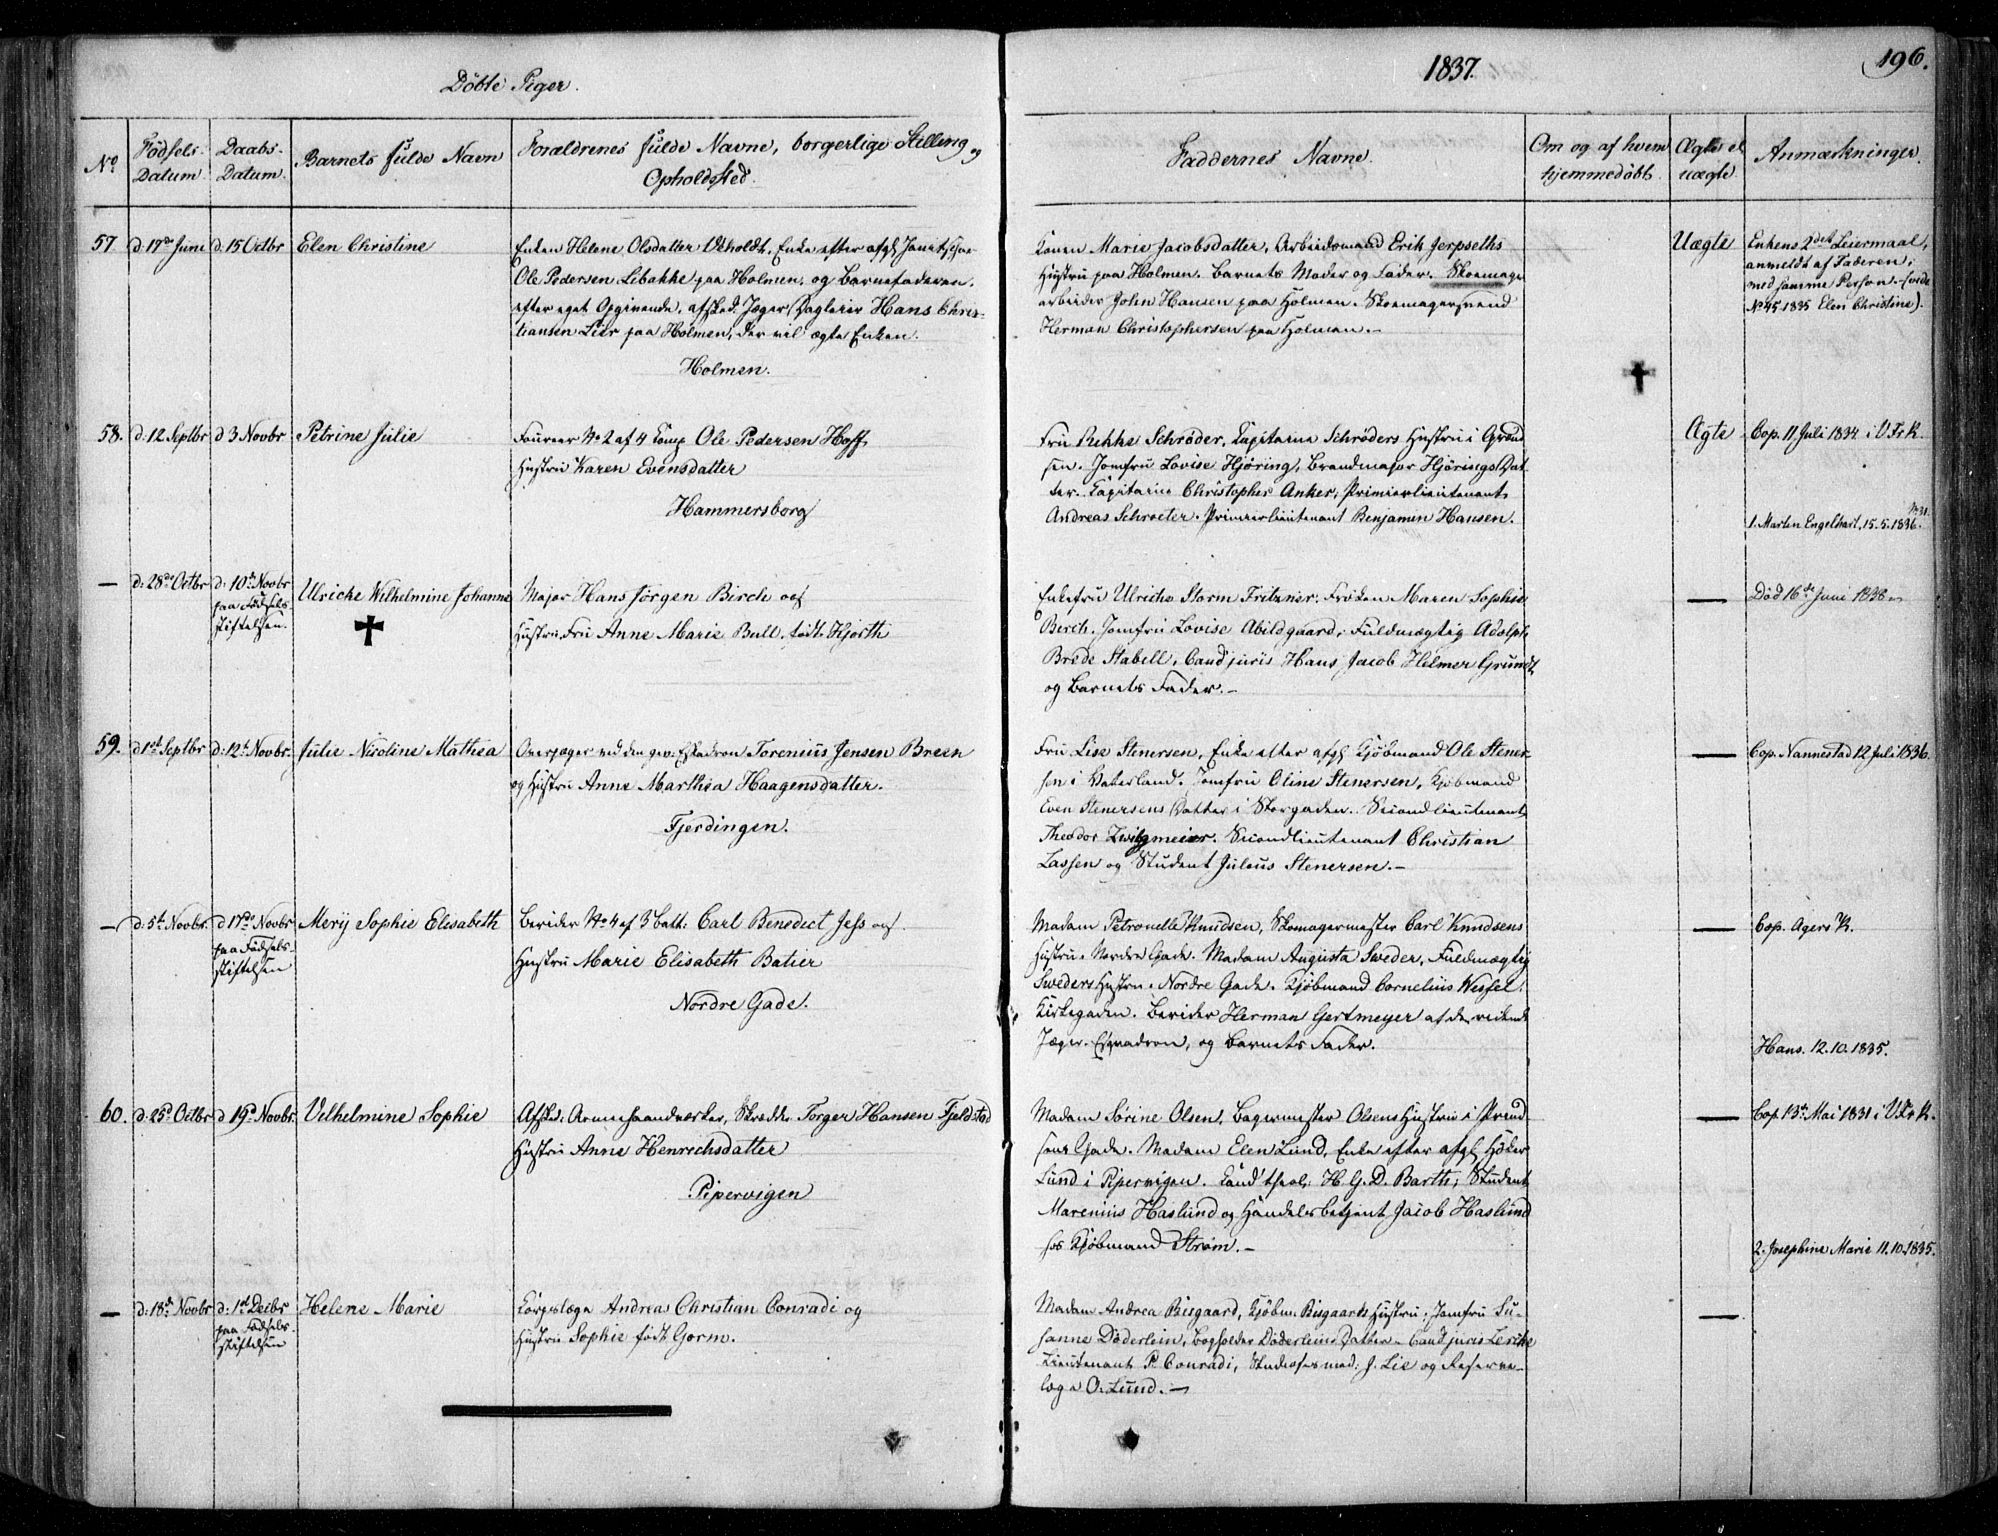 Döbte Piger.
1837.
196.
No
Födsels-
Datum.
Daabs-
Datum.
Barnets fulde Navn
Forældrenes fulde Navne, borgerlige Stilling og
Opholdssted.
Faddernes Navne.
Om og af hvem
hjemmedöbt.
Ægte el.
uægte.
Anmærkninger.
57
d: 17de Juni
d: 15 Octbr
Elen Christine
Enken Helene Olsdatter, Enke efter afgl.
Ole Pedersen Libakke paa Holmen, og Barnefaderen,
efter eget Opgivende, afsked. Jæger Daglejer Hans Chris-
tiansen Lier paa Holmen, der vil ægte Enken.
Holmen.
Konen Marie Jacobsdatter, Arbeidsmand Erik Jerpseths
Hustru paa Holmen. Barnets Moder og Fader. Skomager-
arbeider John Hansen paa Holmen. Skomagersvend
Herman Christophersen paa Holmen.-
Uægte
Enkens 2det Leiermaal,
anmeldt af Faderen;
med samme Person.- (vide
No 45. 1835 Elen Christine).
58.
d: 12 Septbr
d 3 Novbr
Petrine Julie
Foureer No 2 af 4 Komp Ole Pedersen Hoff,
Hustru Karen Evensdatter
Hammersborg
Fru Rikke Schrøder, Kapitaine Schrøders Hustru i Grænd-
sen. Jomfru Lovise Hjøring, Brandmajor Hjørings Dat-
ter. Kapitaine Christopher Anker, Premierlieutenant
Andreas Schroeter. Premierlieutenant Benjamin Hansen.
Ægte
Cop. 11 Juli 1834 i V Fr K.
1. Martin Engelhart. 15.5.1836.
—
d: 28de Octbr
d: 10de Novbr
paa Födsels-
stiftelsen.
Ulricke Wilhelmine Johanne
Major Hans Jörgen Birch og
Hustru, Fru Anne Marie Bull, født Hjorth
Enkefru Ulricke Storm Fritzner. Frøken Maren Sophie
Berch. Jomfru Lovise Abildgaard; Fuldmægtig Adolph
Brede Stabell, Cand juris Hans Jacob Helmer Grundt,
og Barnets Fader.-
—
Död 16de Juni 1838
59.
d 1st Septbr
d: 12te Novbr.
Julie Nicoline Mathea
Overjæger ved den gev. Eskadron Torenius Jensen Breen
og Hustru Anne Marthea Haagensdatter.
Fjerdingen.
Fru Lise Stenersen, Enke efter afgl. Kjöbmand Ole Stener-
sen i Vaterland. Jomfru Oline Stenersen, Kjöbmand
Even Stenersens Datter i Storgaden. Secondlieutenant
Theodor Zwilgmeier. Secondlieutenant Christian
Lassen og Student Julius Stenersen.-
—
Cop. Nannestad 12 Juli 1836.
—
d: 5te Novbr.
d 17de Novbr
paa Födsels-
stiftelsen
Merij Sophie Elisabeth
Berider No 4 af 3 Batt. Carl Benedect Jess og
Hustru Marie Elisabeth Batier
Nordre Gade.
Madam Petronelle Knudsen, Skomagermester Carl Knudsens
Hustru. Nordre Gade. Madam Augusta Sweder, Fuldmægtig
Sweders Hustru. Nordre Gade. Kjöbmand Cornelius Wessel.
Kirkegaden. Berider Herman Gertmeyer af de ridende
Jæger-Esquadron, og Barnets Fader.
—
Cop. Agers K.
Hans. 12.10.1835.
60.
d: 25d Octbr
d 19d Novbr.
Vilhelmine Sophie
Afsked. Armehaandværker, Skrædder Torger Hansen Fjeldstad
Hustru Anne Henrichsdatter
Pipervigen
Madam Sörine Olsen, Bagermester Olsens Hustru i Prind-
sens Gade. Madam Elen Lund, Enke efter afgl. Höker
Lund i Pipervigen. Cand: theol: H. G. D. Barth; Student
Marenius Haslund og Handelsbetjent Jacob Haslund
hos Kjöbmand Ström.-
—
Cop. 13de Mai 1831 i V. Fr K.
2. Josephine Marie 11.10.1835.
—
d: 18de Novbr
d: 1st Decbr
paa Födsels-
stiftelsen
Helene Marie
Korpslæge Andreas Christian Conradi og
Hustru Sophie født Gorm.
Madam Andrea Bisgaard, Kjøbm. Bisgaards Hustru; Jomfru Su-
sanne Döderlein, Bogholder Döderleins Datter - Cand juris Lerche
Lieutenant P. Conradi, Studiosus med: J. Lie og Reserve-
læge O. Lund. -
—